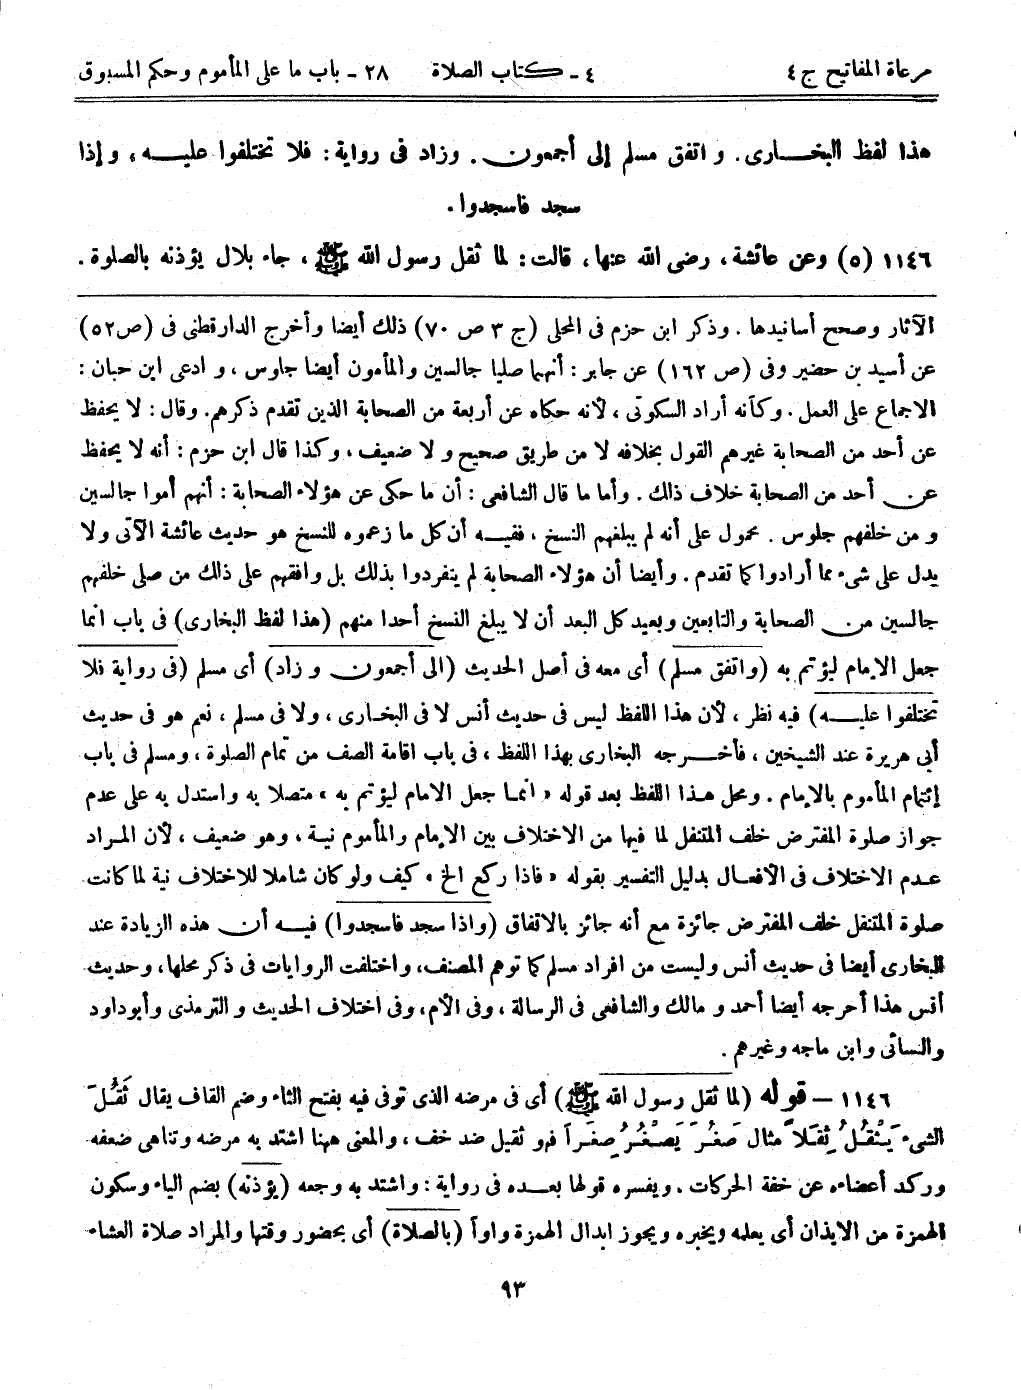 مرعاة المفاتيح ج ٤ ٤ - كتاب الصلاة ٢٨ - باب ما على المأموم وحكم المسبوق
هذا لفظ البخارى. و اتفق مسلم إلى أجمعون. وزاد فى رواية: فلا تختلفوا عليه، وإذا
سجد فاسجدوا.
١١٤٦ (٥) وعن عائشة، رضى الله عنها، قالت: لما ثقل رسول الله ﷺ، جاء بلال يؤذنه بالصلوة.
الآثار وصحح أسانيدها. وذكر ابن حزم فى المحلى (ج ٣ ص ٧٠) ذلك أيضا وأخرج الدارقطنى فى (ص٥٢)
عن أسيد بن حضير وفى (ص ١٦٢) عن جابر: أنهما صليا جالسين والمأمون أيضا جاوس، و ادعى ابن حبان:
الاجماع على العمل. وكأنه أراد السكوتى، لأنه حكاه عن أربعة من الصحابة الذين تقدم ذكرهم. وقال: لا يحفظ
عن أحد من الصحابة غيرهم القول بخلافه لا من طريق صحيح و لا ضعيف، وكذا قال ابن حزم: أنه لا يحفظ
عن أحد من الصحابة خلاف ذالك. وأما ما قال الشافعى: أن ما حكى عن هؤلاء الصحابة: أنهم أموا جالسين
و من خلفهم جلوس. محمول على أنه لم يبلغهم النسخ، ففيه أن كل ما زعموه للنسخ هو حديث عائشة الآتى ولا
يدل على شىء مما أرادوا كما تقدم. وأيضا أن هؤلاء الصحابة لم ينفردوا بذلك بل وافقهم على ذلك من صلى خلفهم
جالسين من الصحابة والتابعين وبعيد كل البعد أن لا يبلغ النسخ أحدا منهم (هذا لفظ البخارى) فى باب انما
جعل الإمام ليؤتم به (واتفق مسلم) أى معه فى أصل الحديث (الى أجمعون و زاد) أى مسلم (فى رواية فلا
تختلفوا عليه) فيه نظر، لأن هذا اللفظ ليس فى حديث أنس لا فى البخارى، ولا فى مسلم، نعم هو فى حديث
أبى هريرة عند الشيخين، فأخرجه البخارى بهذا اللفظ، فى باب اقامة الصف من تمام الصلوة، ومسلم فى باب
إئتمام المأموم بالإمام. ومحل هذا اللفظ بعد قوله «انما جعل الامام ليؤتم به» متصلا به واستدل به على عدم
جواز صلوة المفترض خلف المتنفل لما فيها من الاختلاف بين الإمام والمأموم نية، وهو ضعيف، لأن المراد
عدم الاختلاف فى الأفعال بدليل التفسير بقوله «فاذا ركع الخ» كيف ولو كان شاملا للاختلاف نية لما كانت
صلوة المتنفل خلف المفترض جائزة مع أنه جائز بالاتفاق (واذا سجد فاسجدوا) فيه أن هذه الزيادة عند
البخارى أيضا فى حديث أنس وليست من افراد مسلم كما توهم المصنف، واختلفت الروايات فى ذكر محلها، وحديث
أنس هذا أخرجه أيضا أحمد و مالك والشافعى فى الرسالة، وفى الأم، وفى اختلاف الحديث و الترمذى وأبوداود
والنسائى وابن ماجه وغيرهم.
١١٤٦ — قوله (لما ثقل رسول الله ﷺ) أى فى مرضه الذى توفى فيه بفتح الثاء وضم القاف يقال ثَقُلَ
الشىء يَثْقُلُ ثِقَلاً مثال صَغُرَ يَصْغُرُ صِغَراً فهو ثقيل ضد خف، والمعنى ههنا اشتد به مرضه وتناهى ضعفه
وركد أعضاءه عن خفة الحركات. ويفسره قولها بعده فى رواية: واشتد به وجعه (يؤذنه) بضم الياء وسكون
الهمزة من الايذان أى يعلمه ويخبره ويجوز ابدال الهمزة واواً (بالصلاة) أى بحضور وقتها والمراد صلاة العشاء
٩٣